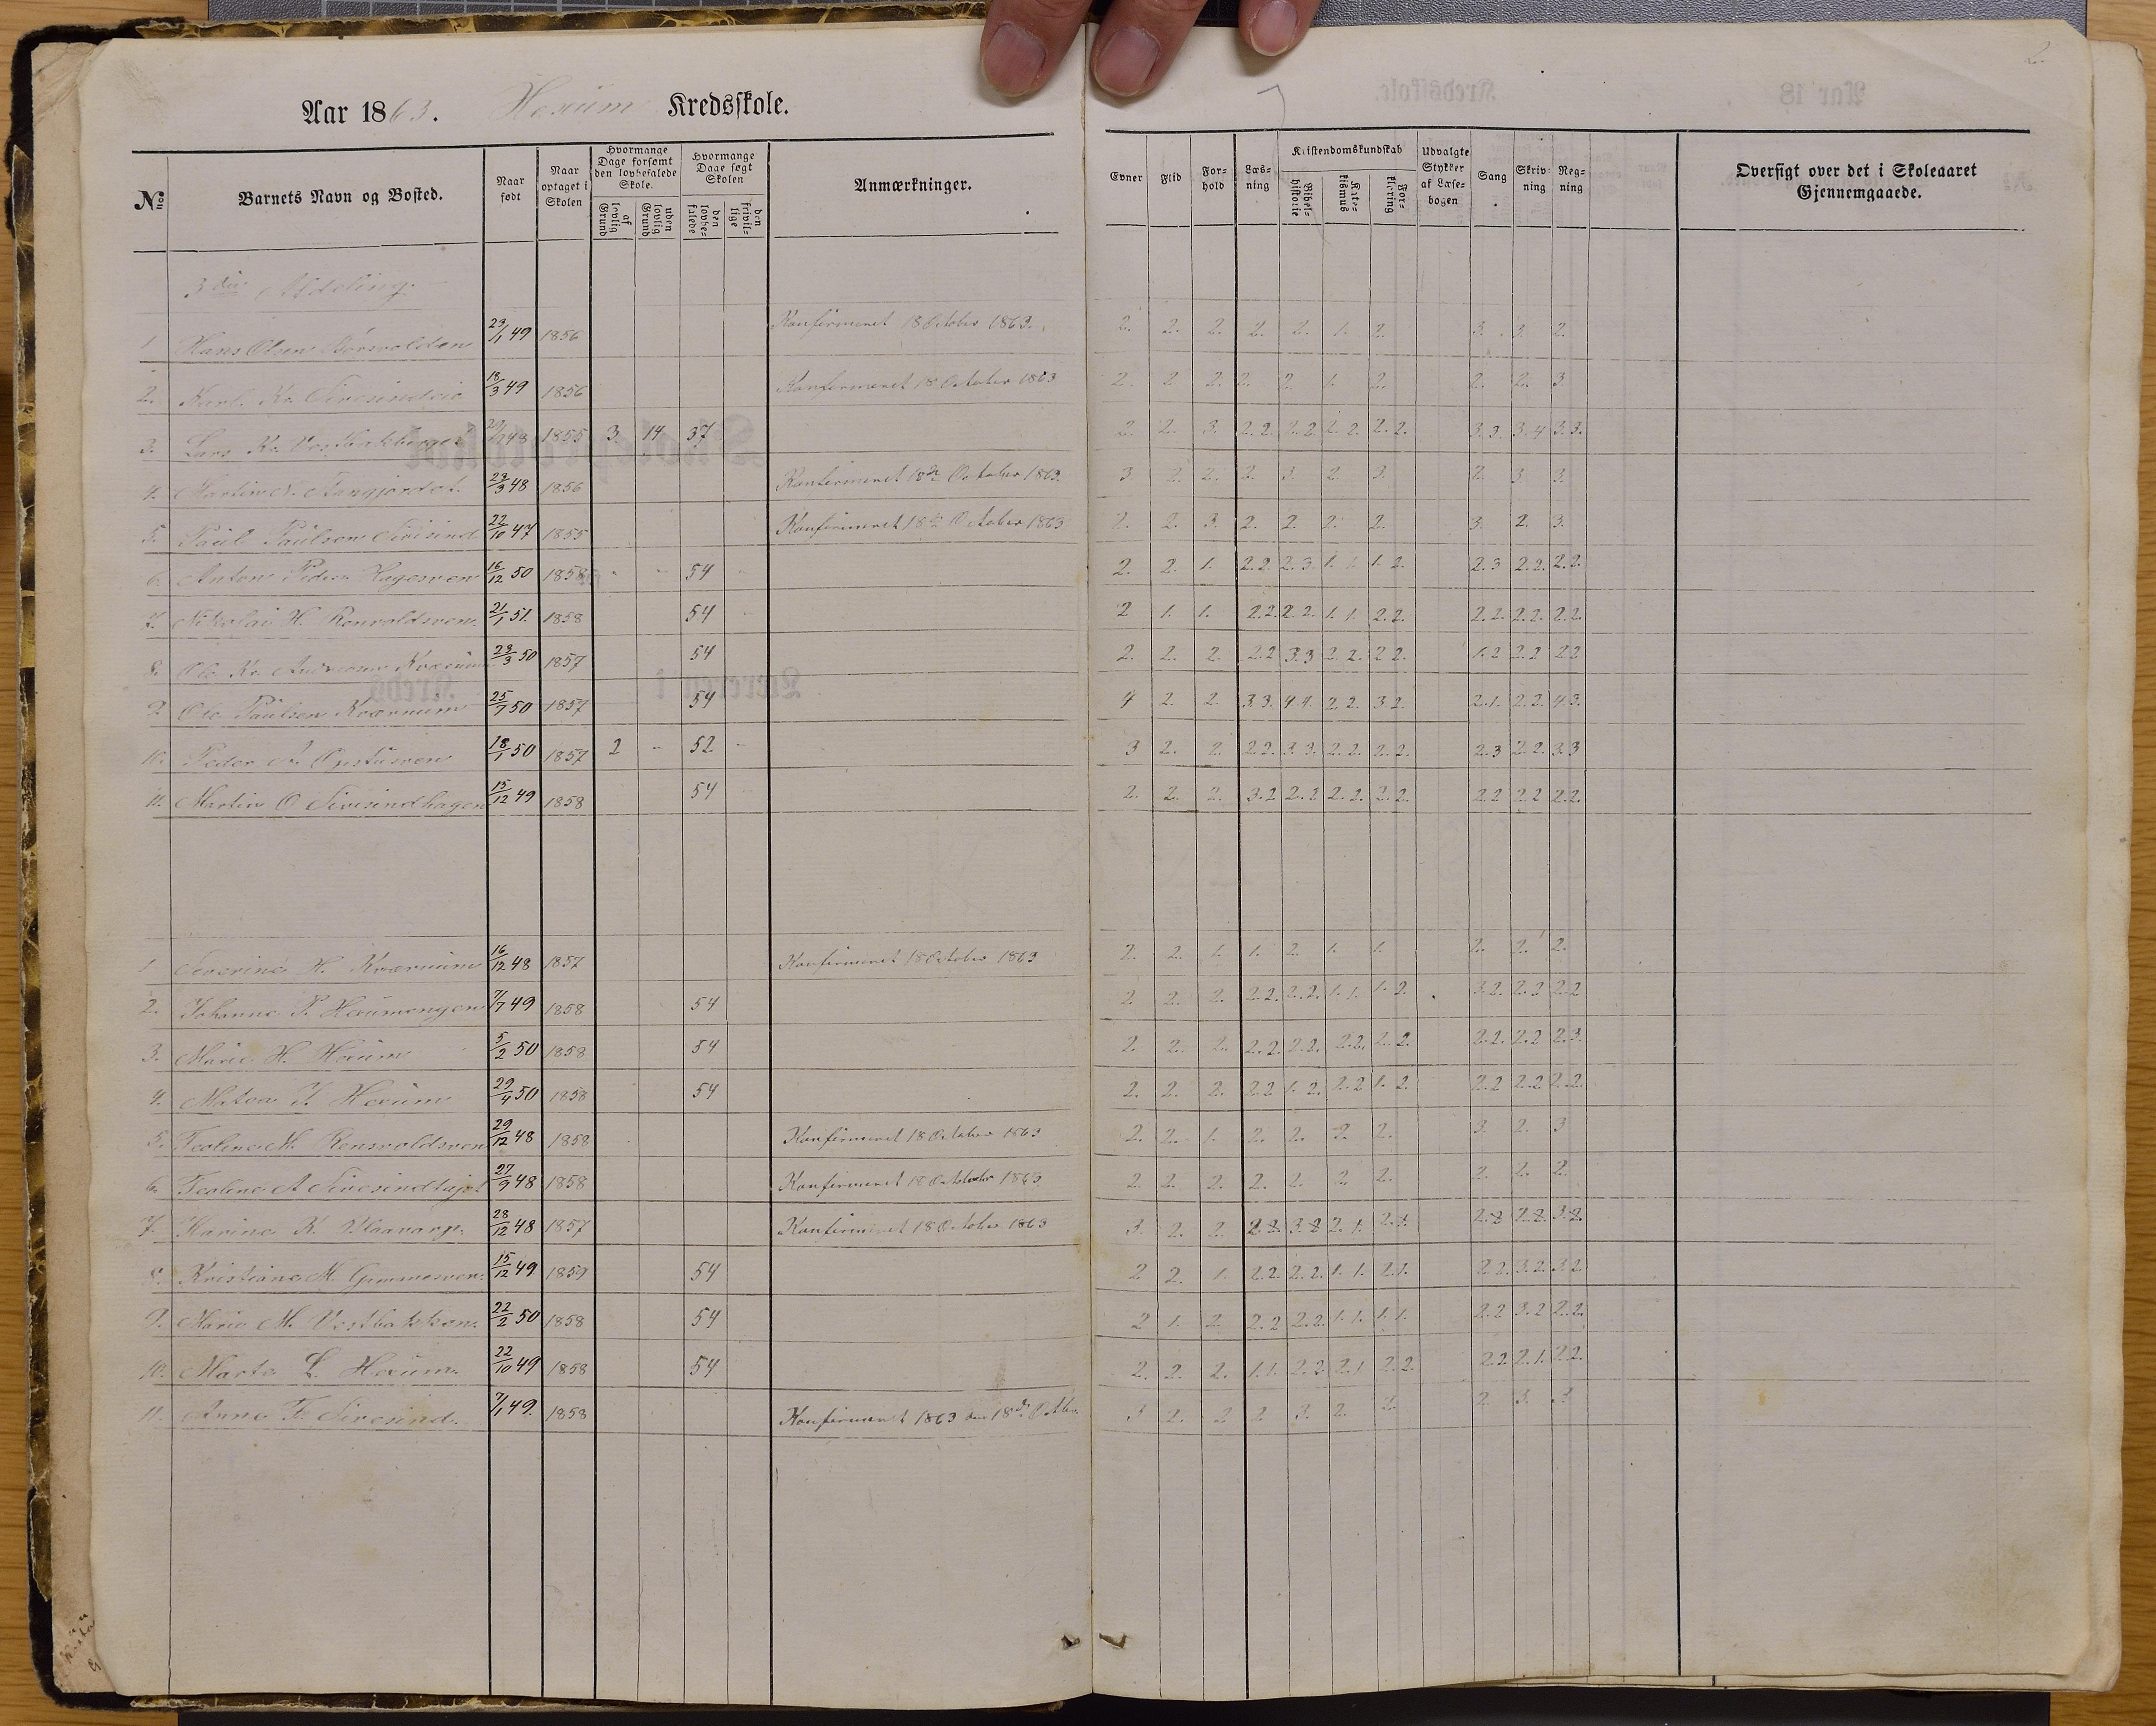 Aar 1863. Hexum Kredsskole.
No | Barnets Navn og Bosted. | Naar født | Naar optaget i Skolen | Hvormange Dage forsømt den lovbefalede Skole. af lovlig Grund | uden lovlig Grund | Hvormange Dage søgt Skolen den lovbefalede | den frivillige | Anmærkninger. | Evner | Flid | Forhold | Læsning | Kristendomskundskab Bibelhistorie | Katekismus | Forklaring | Udvalgte Stykker af Læsebogen | Sang | Skrivning | Regning | Oversigt over det i Skoleaaret Gjennemgaaede.
3die Afdeling.
1. Hans Olsen 23/1 49 1856 Konfirmeret 18 October 1863. 2. 2. 2. 2. 2. 1. 2. 3. 3. 2.
2. Karl Kr. 18/3 49 1856 Konfirmeret 18 October 1863 2. 2 2. 2. 2. 1. 2. 2. 2. 3.
3. Lars Kr. 1855 3 14 37 2. 2. 3. 2.2. 2.2 2.2. 2.2. 3.3. 3.4 3.3.
4. Martin 23/3 48 1856 Konfirmeret 18de October 1863. 3 2. 2. 2. 3. 2. 3. 2. 3. 3.
5. Paul Paulsen Sivesind 22/10 47 1855 Konfirmeret 18de October 1863 2. 2. 3. 2. 2. 2. 2. 3. 2. 3.
6. Anton Peders. Hagesveen 16/12 50 1858 54 2. 2. 1. 2.2. 2.3. 1. 1. 1.2. 2.3 2.2. 2.2.
7. Nikolai H. Ronvoldsveen. 21/1 51. 1858 54 2 1. 1. 2.2. 2.2. 1.1. 2.2. 2.2. 2.2. 2.2.
8. Ole Kr. Andreasen Kværnum 23/3 50 1857 54 2. 2. 2. 2.2 3.3 2.2. 2.2. 1.2 2.2 2.2
9. Ole Paulsen Kværnum 25/7 50 1857 54 4 2. 2. 3.3. 4.4. 2.2. 3.2. 2.1. 2.2. 4.3.
10. Peder A. 18/1 50 1857 2 - 52 - 3 2. 2. 2.2. 3.3. 2.2. 2.2. 2.3 2.2 3.3
11. Martin O. Sivesindhagen 15/12 49 1858 54 2. 2. 2. 3.2 2.2 2.2. 2.2. 2.2 2.2 2.2.
1 Severine H. Kværnum 16/12 48 1857 Konfirmeret 18 October 1863 2. 2. 1. 1. 2. 1. 1. 2. 2. 2.
2. Johanne P. Hexumengen 7/7 49 1858 54 2 2. 2. 2.2. 2.2. 1.1. 1.2. 3.2. 2.2 2.2
3. Marie H. Hexum 5/2 50 1858 54 2. 2. 2. 2.2. 2.2. 2.2. 2.2. 2.2. 2.2 2.3.
4. Matea J. Hexum 29/4 50 1858 54 2. 2. 2. 2.2 1.2. 2.2 1.2. 2.2 2.2 2.2.
5. Teoline M. Ronsvoldsveen 29/12 48 1858 Konfirmeret 18 October 1863 2. 2. 1. 2. 2. 2. 2. 3. 2. 3
6. Teoline A. 27/9 48 1858 Konfirmeret 18 October 1863 2. 2. 2. 2. 2. 2. 2. 2. 2. 2.
7. Karine K. 28/12 48 1857 Konfirmeret 18 October 1863 3. 2. 2. 2.2. 3.2 2.1. 2.1. 2.2 2.2. 3.2.
8. Kristiane M. 15/12 49 1859 54 2 2. 1. 2.2. 2.2. 1.1. 2.1. 2.2. 3.2. 3.2.
9. Marie M. Vestbakken. 22/2 50 1858 54 2 1. 2 2.2 2.2. 1.1. 1.1. 2.2 3.2 2.2.
10. Marte L. Hexum. 22/10 49 1858 54 2. 2. 2. 1.1. 2.2 2.1 2.2. 2.2 2.1. 2.2.
11. Anne F. Sivesind. 7/1 49. 1858 Konfirmeret 1863 den 18de Octbr. 3 2. 2 2 3. 2. 2. 2. 3. 3